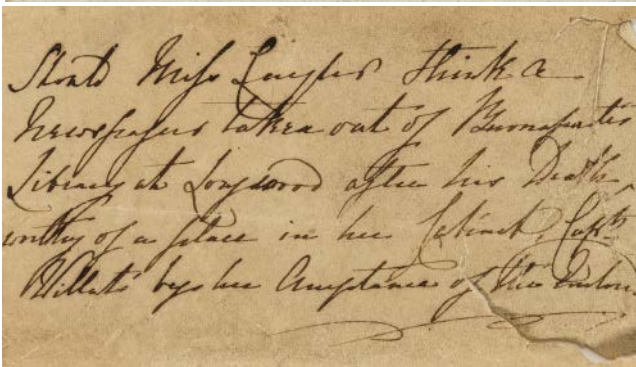 Should Miss think a
Newspaper taken out of Buonapartes
Library at Longwood after his Death,
worthy of a place in her Cabinet, Capt
Willats begs her Acceptance of the